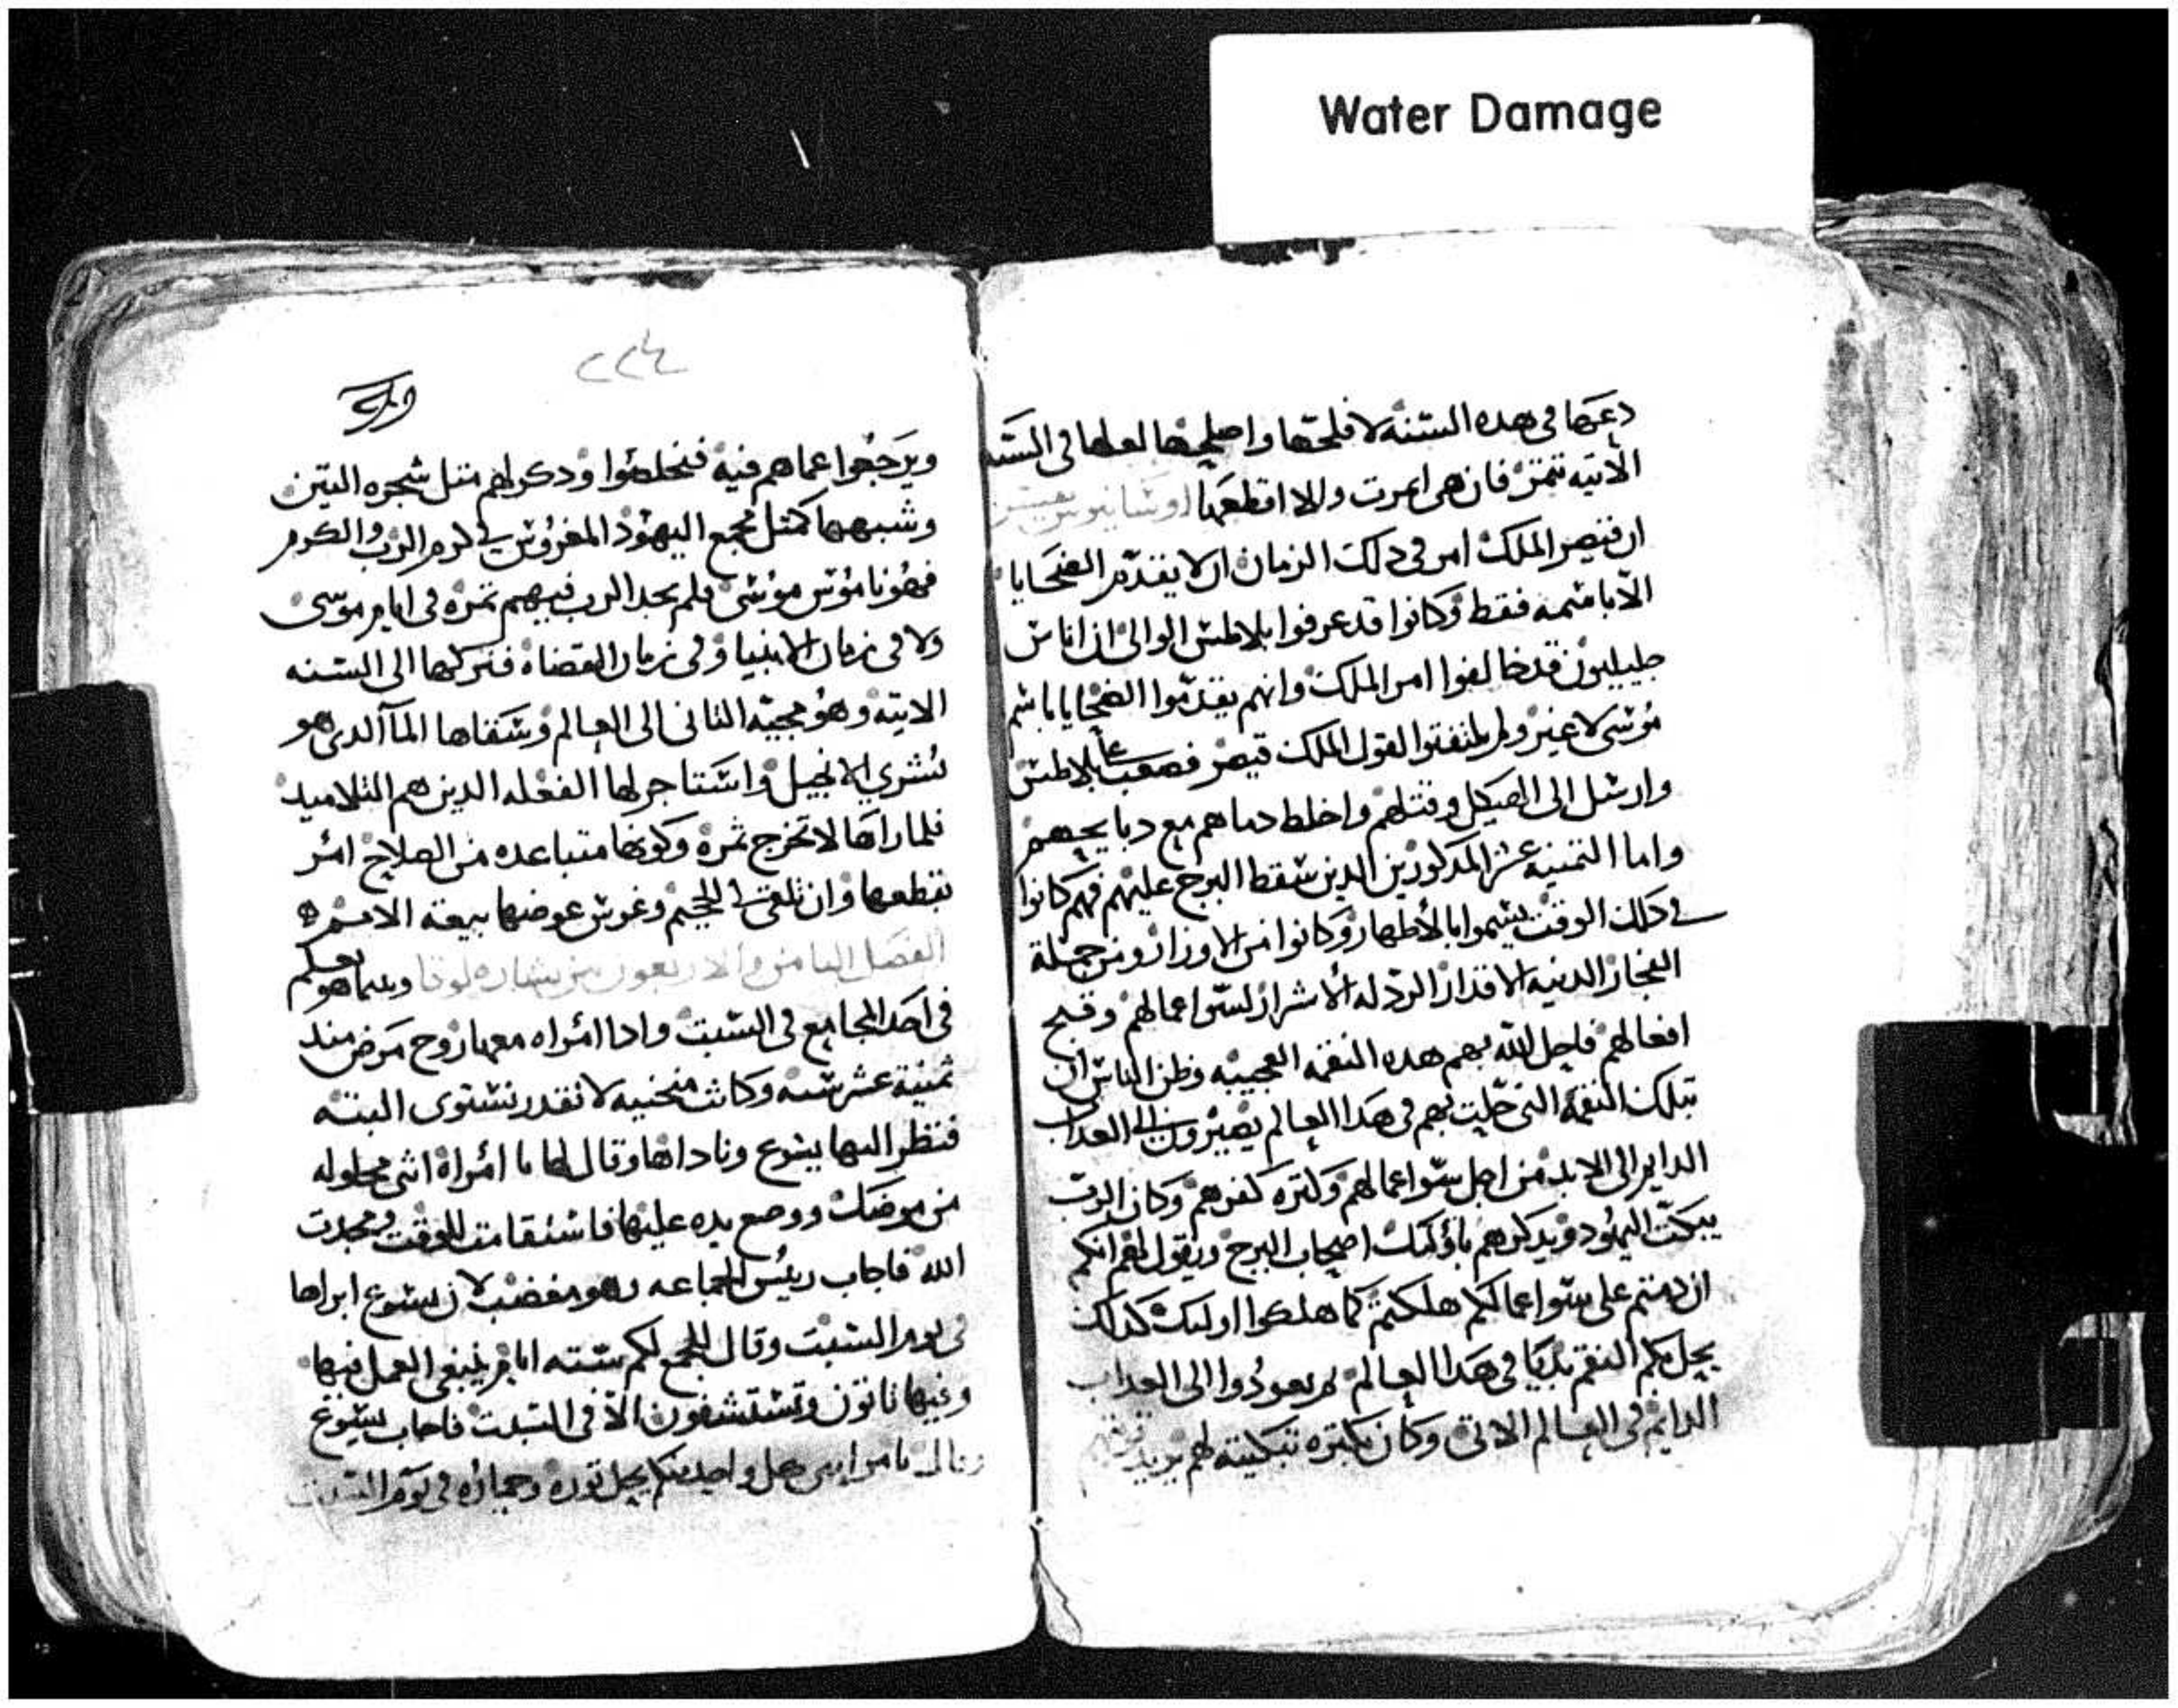 Water Damage
دعها فى هده السنه لافلحها واصلحها لعلها فى السنه
الاتيه تتمر فان هى اتمرت والا اقطعها
ان قيصر الملك امر فى دلك الزمان ان لا يقدم الضحايا
الا باسمه فقط وكانوا قد عرفوا بلاطس الوالى ان اناس
جليليون قد خالفوا امر الملك وانهم يقدموا الضحايا باسم
موسى لا غير ولم يلتفتوا لقول الملك قيصر فصعب على بلاطس
وارسل الى الهيكل وقتلهم واخلط دماهم مع دبايحهم
واما التمنيه عشر المدكورين الدين سقط البرج عليهم فهم كانوا
فى دلك الوقت يسموا بالأطهار وكانوا من الاوزار ومن جملة
الفجار الدنيه الاقدار الردله الأشرار لسوا اعمالهم وقبح
افعالهم فاحل الله بهم هده النقمه العجيبه وظن الناس ان
بتلك النقمه التى حلت بهم فى هدا العالم يصيرون الى العداب
الدايم الى الابد من اجل سوا اعمالهم وكتره كفرهم وكان الرب
يبكت اليهود ويدكرهم باؤليك اصحاب البرج ويقول لهم انكم
ان دمتم على سوا اعمالكم هلكتم كما هلكوا اوليك كدلك
يحل بكم النقم بديا فى هدا العالم تم يعودوا الى العداب
الدايم فى العالم الاتى وكان بكتره تبكيته لهم يريد توبتهم
٢٢٤
ويرجعوا عما هم فيه فيخلصوا ودكر لهم متل شجره التين
وشبهها كمتل مجمع اليهود المغروس فى كرم الرب والكرم
فهو ناموس موسى فلم يجد الرب فيهم تمره فى ايام موسى
ولا فى زمان الانبيا وفى زمان القضاه فتركها الى السنه
الاتيه وهو مجيه التانى الى العالم وسقاها المآ الدى هو
بشرى الانجيل واستاجر لها الفعله الدين هم التلاميد
فلما راها لا تخرج تمره وكونها متباعده من الصلاح امر
بقطعها وان تلقى فى الجحيم وغرس عوضها بيعة الامم
الفصل التامن والاربعون من بشاره لوقا وبينما هو يعلم
فى احد المجامع فى السبت وادا امراه معها روح مرض مند
تمنية عشر سنه وكانت منحنيه لا تقدر تستوى البته
فنظر اليها يسوع وناداها وقال لها يا امراة انتى محلوله
من مرضك ووضع يده عليها فاستقامت للوقت ومجدت
الله فاجاب رييس الجماعه وهو مغضب لان يسوع ابراها
فى يوم السبت وقال للجمع لكم سته ايام ينبغى العمل فيها
وفيها تاتون وتستشفون الا فى السبت فاجاب يسوع
وقال يا مرايين هل واحد منكم يحل توره وحماره فى يوم السبت